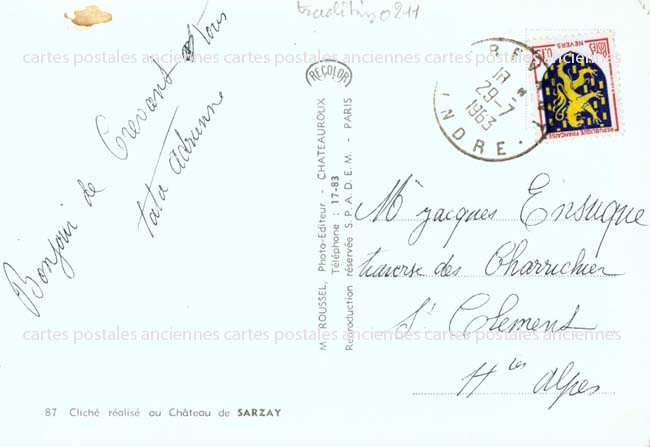 traditions0211
cartes postales anciennes cartes postales anciennes cartes postales anciennes
Bonjour de Crevant à tous
tata Adrienne
RECOLOR
M. ROUSSEL, Photo-Editeur - CHATEAUROUX
Téléphone : 17-83
Reproduction réservée S.P.A.D.E.M. - PARIS
18 H
29-7
1963
INDRE
POSTES
0,15
NEVERS
REPUBLIQUE FRANÇAISE
Mr Jacques Ensuque
traverse des Charrichier
St Clément
Htes Alpes
cartes postales anciennes cartes postales anciennes cartes postales anciennes
87 Cliché réalisé au Château de SARZAY